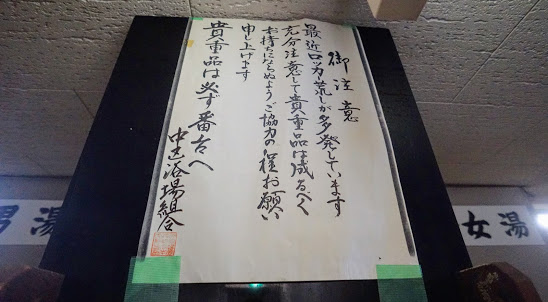 御注意
最近ロッカー荒しが多発しています
充分注意して貴重品は成るべく
お持ちにならぬようご協力の程お願い
申し上げます
貴重品は必ず番台へ
浴場組合
男湯
女湯